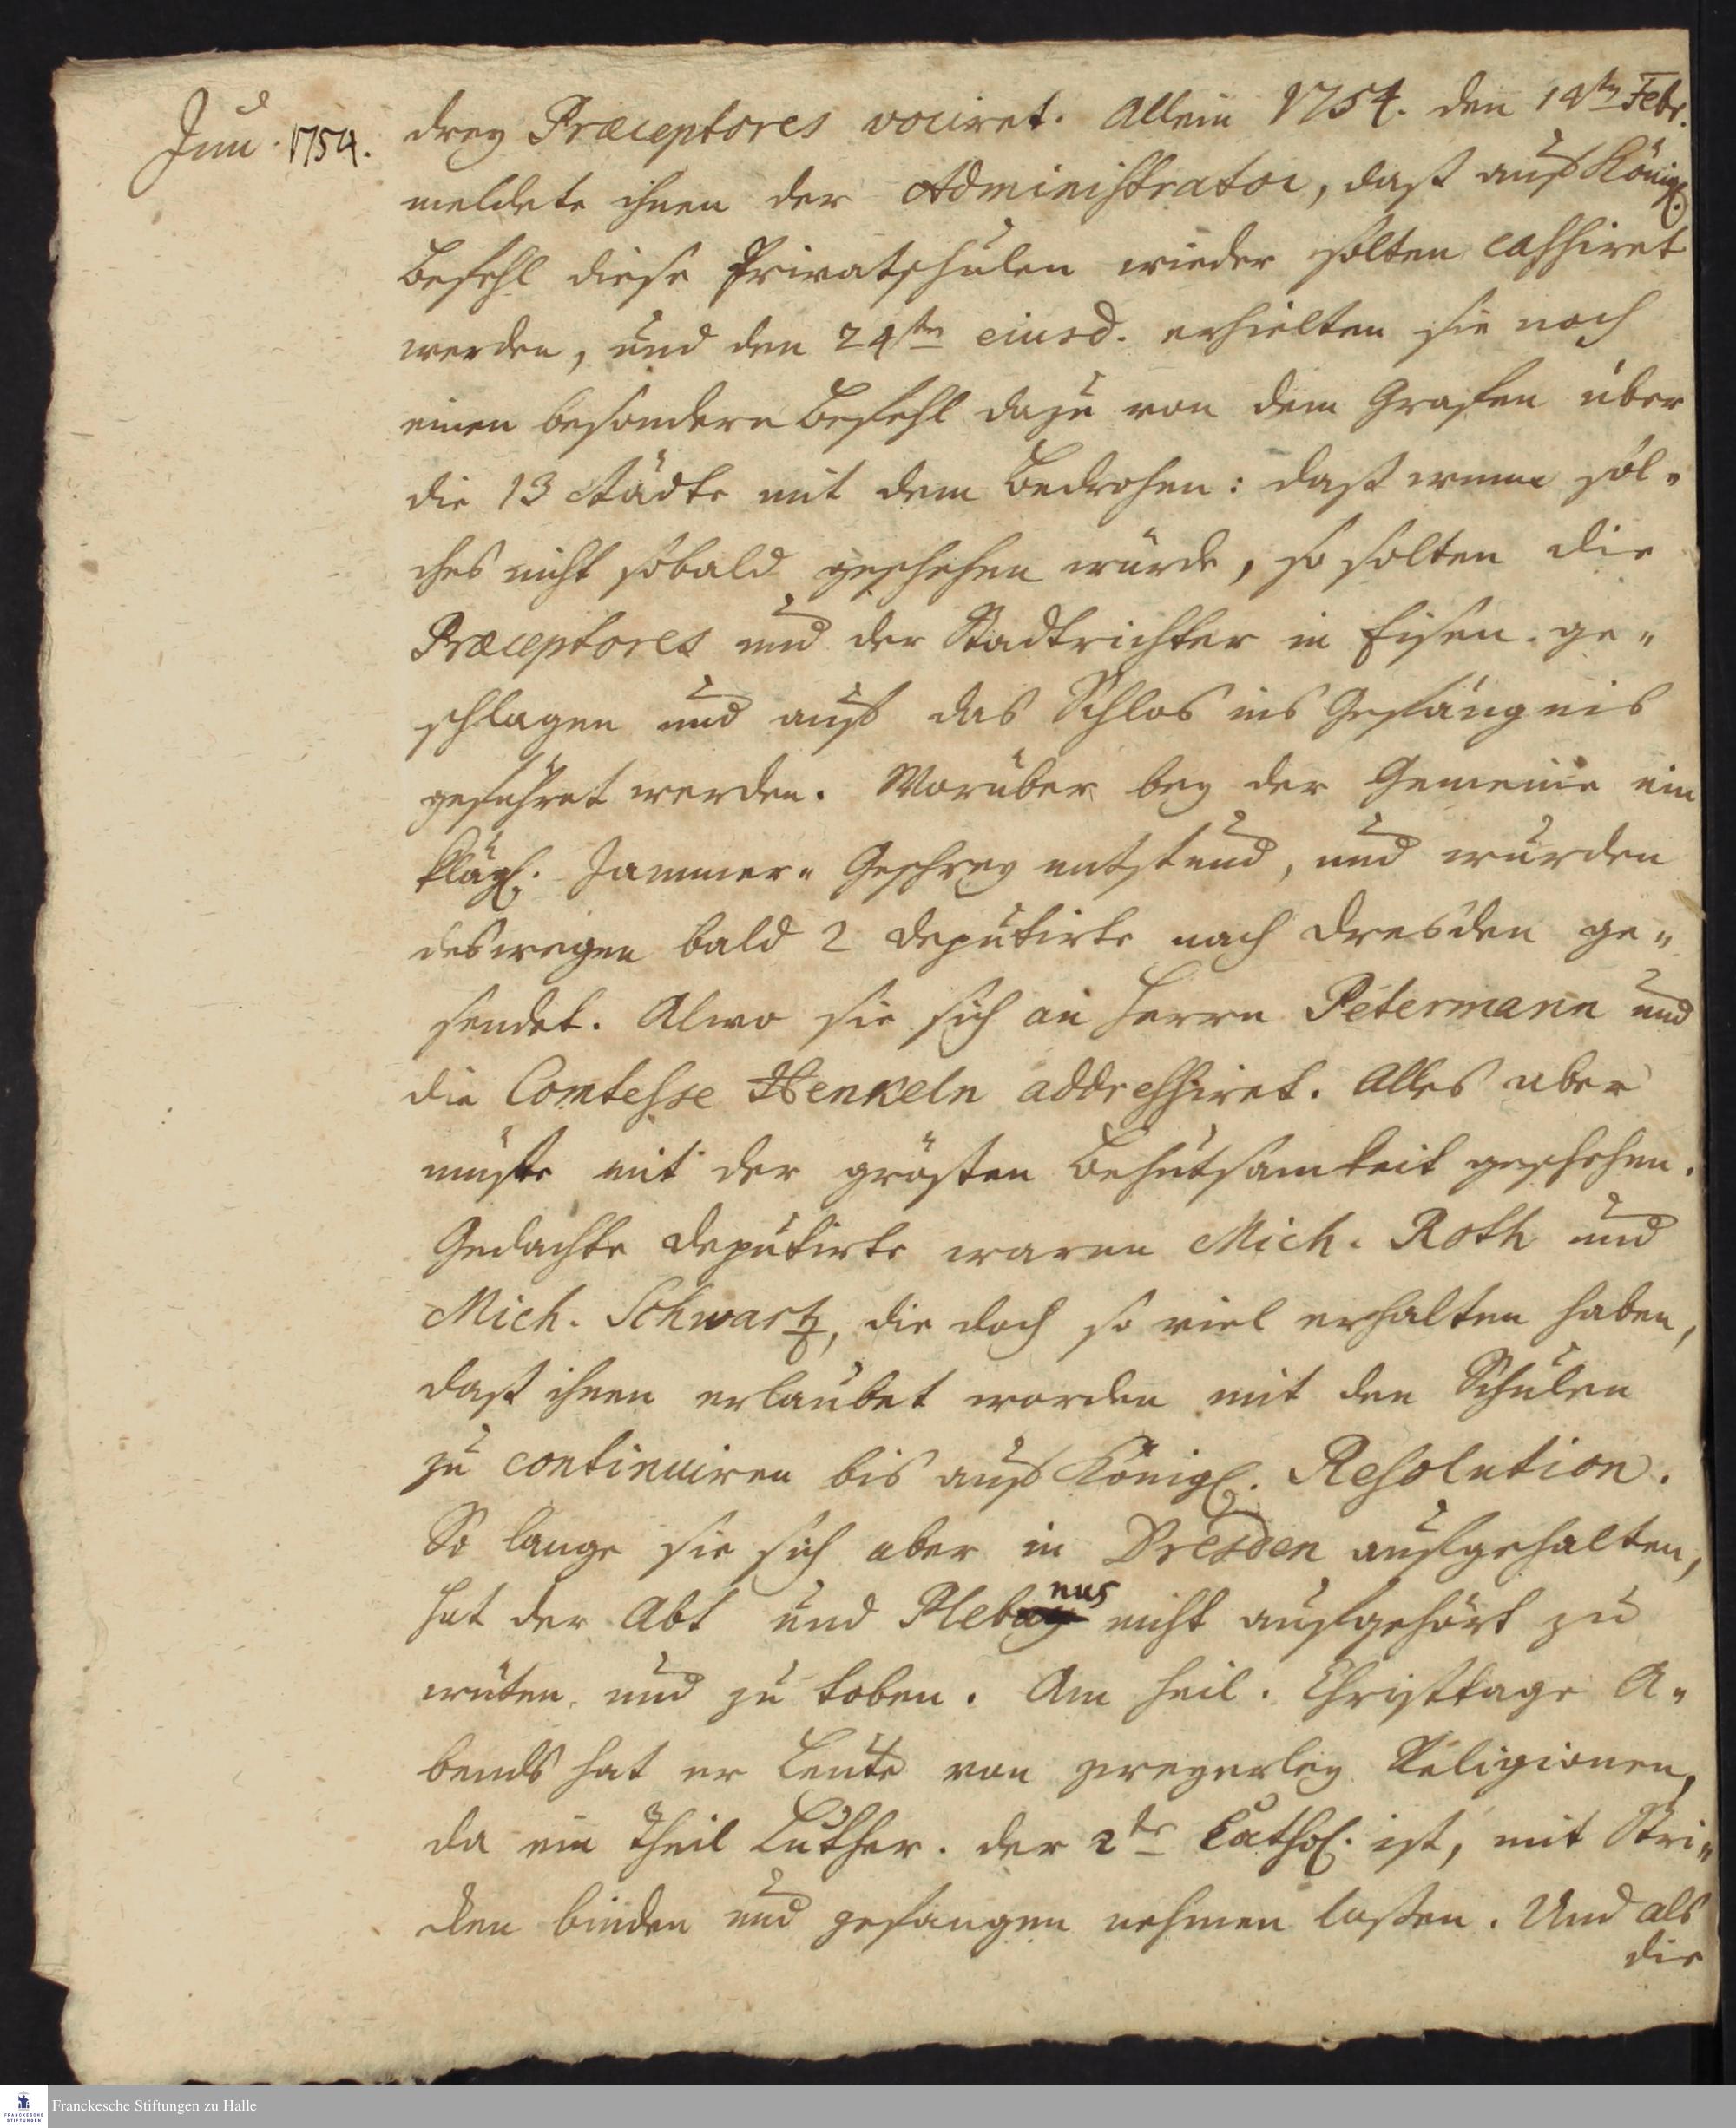 Jun. 1754.
drey Præceptores vociret. Allein 1754. den 14ten Febr.
meldete ihnen der Administrator, daß auf Königl.
Befehl diese Privatschulen wieder solten cassiret
werden, und den 24sten eiusd. erhielten sie noch
einen besondern Befehl dazu von dem Grafen über
die 13 Städte mit dem Bedrohen: daß wenn sol-
ches nicht sobald geschehen würde, so solten die
Præceptores und der Stadtrichter in Eisen ge-
schlagen und auf das Schlos ins Gefängnis
geführet werden. Worüber bey der Gemeine ein
klägl. Jammer-Geschrey entstund, und wurden
deswegen bald 2 Deputirte nach Dresden ge-
sendet. Alwo sie sich an Herrn Petermann und
die Comtesse Henkeln addressiret. Alles aber
muste mit der grösten Behutsamkeit geschehen.
Gedachte Deputirte waren Mich. Roth und
Mich. Schwartz, die doch so viel erhalten haben,
daß ihnen erlaubet worden mit den Schulen
zu continuiren bis auf Königl. Resolution.
So lange sie sich aber in Dresden aufgehalten,
hat der Abt und Plebanus nicht aufgehört zu
wüten und zu toben. Am heil. Christtage A-
bends hat er Leute von zweyerley Religionen,
da ein Theil Luther. der 2te Cathol. ist, mit Stri-
cken binden und gefangen nehmen laßen. Und als
die
Franckesche Stiftungen zu Halle